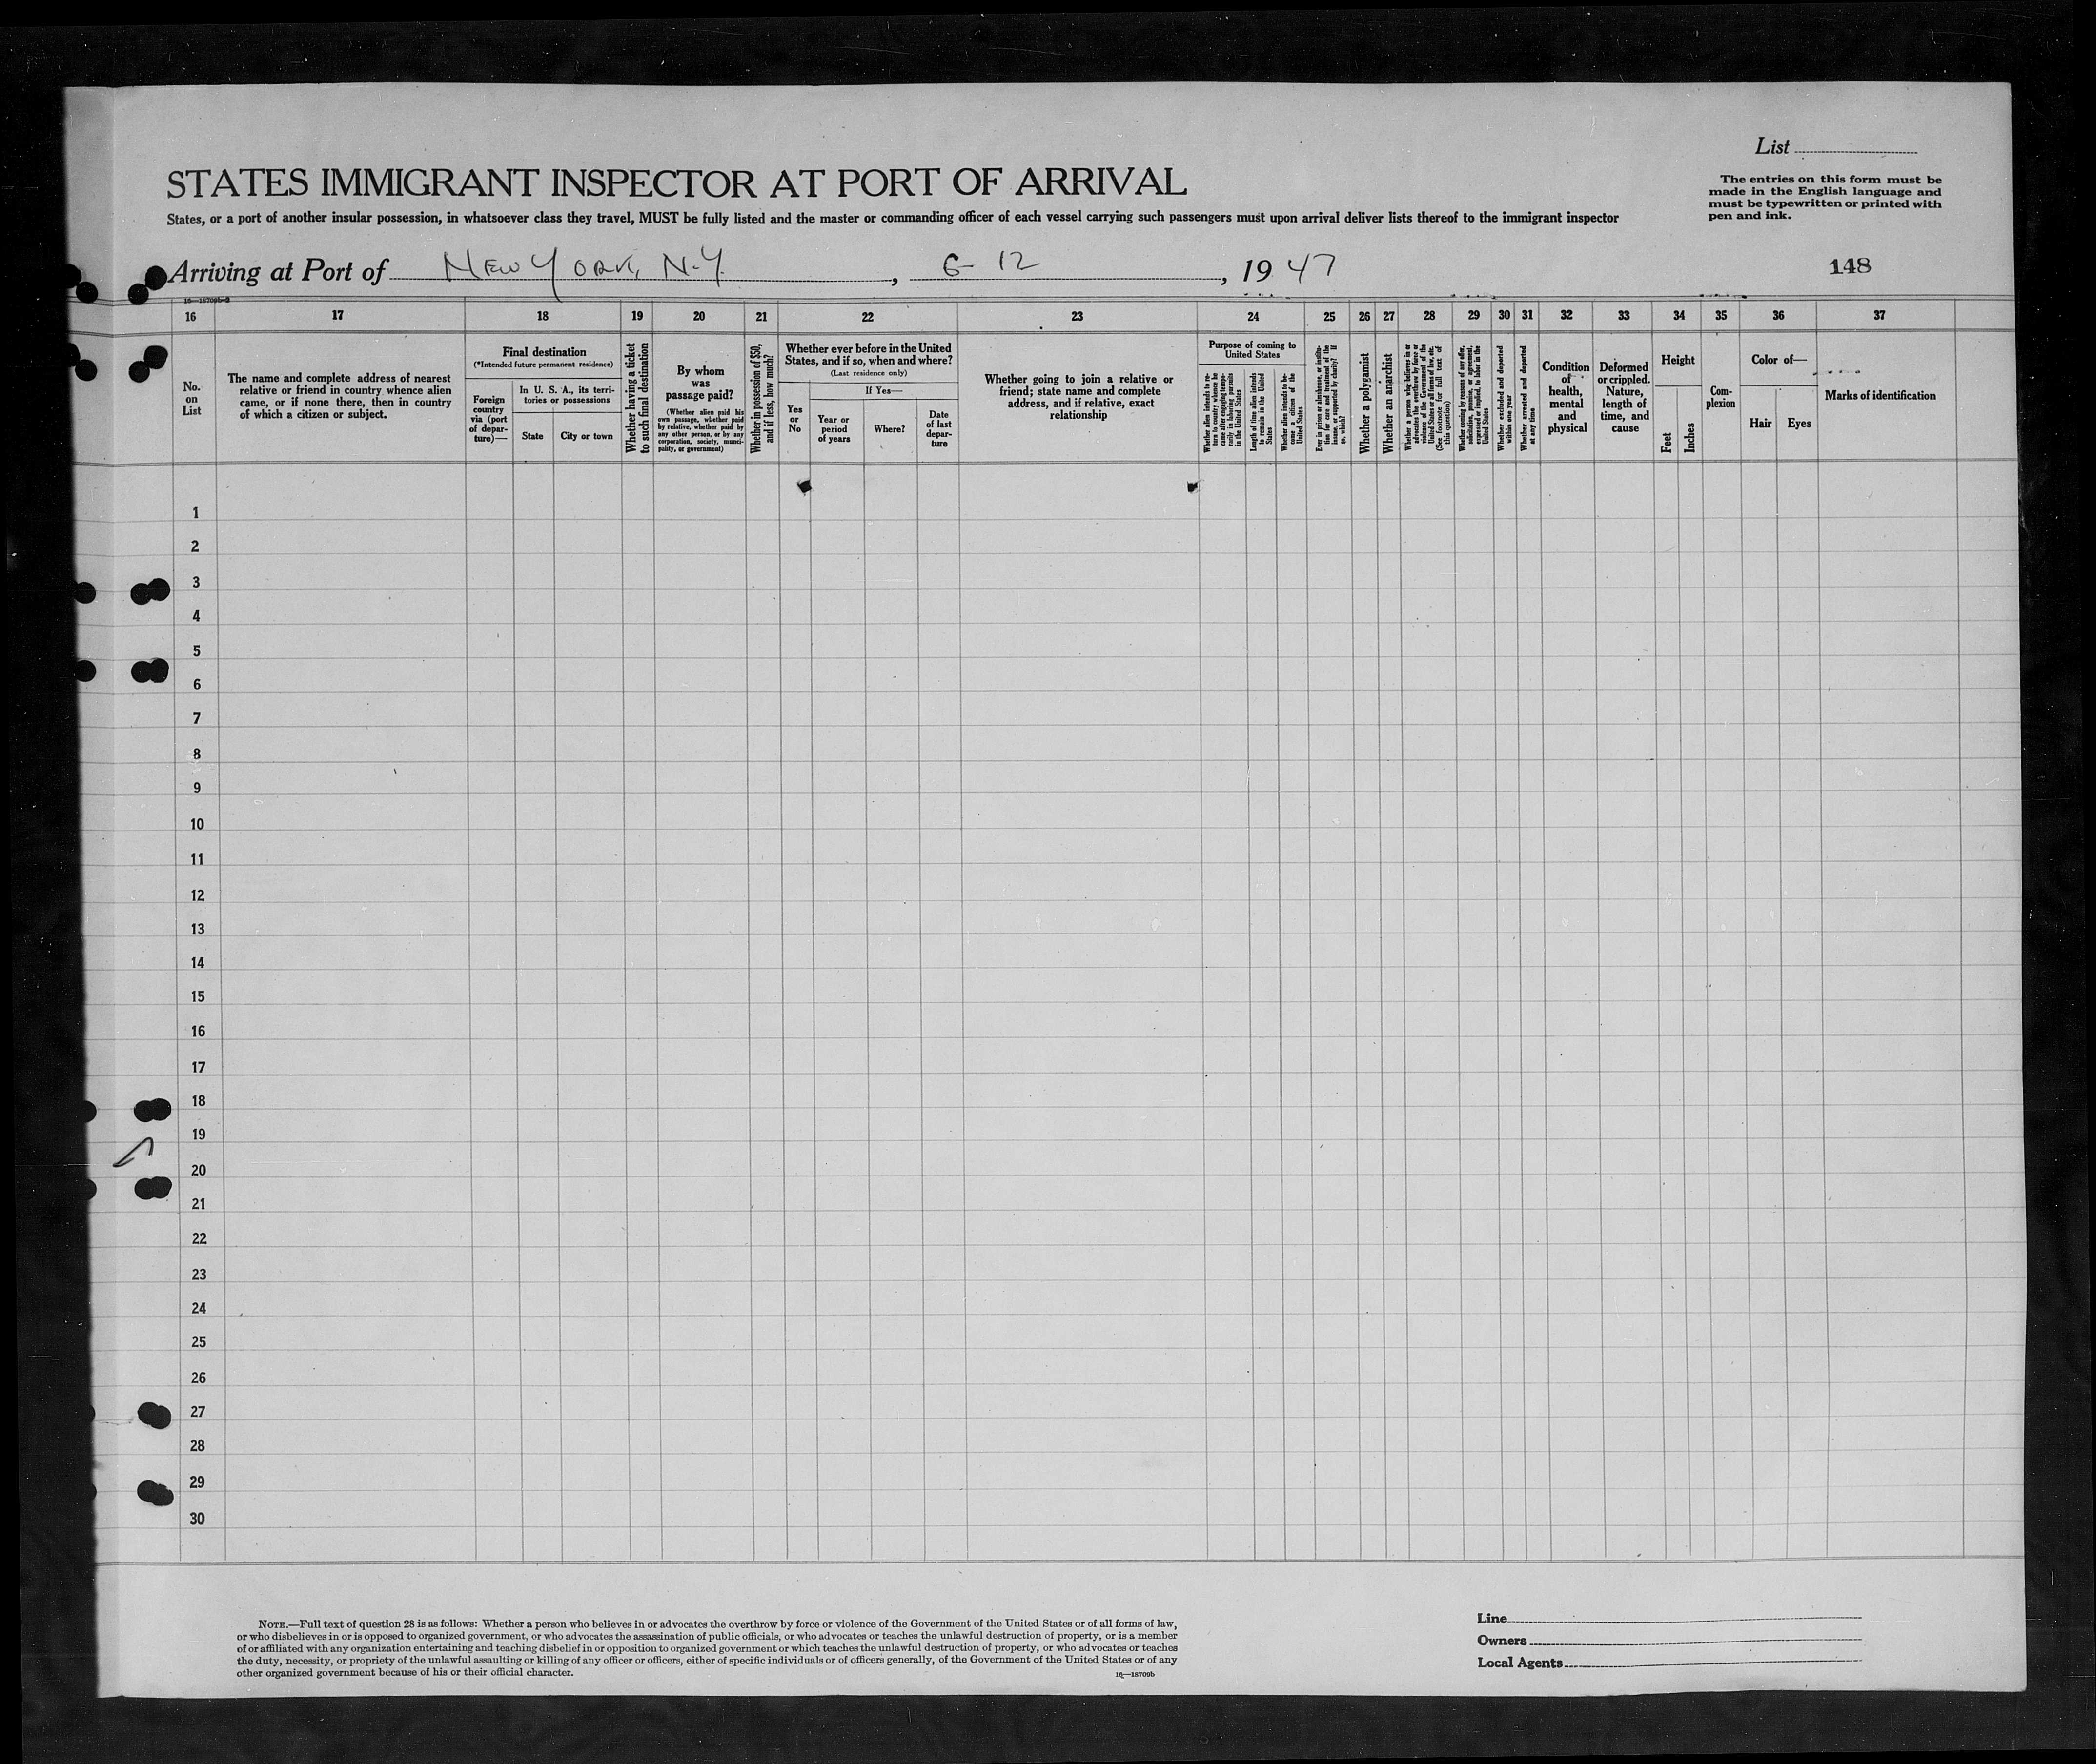 List
STATES IMMIGRANT INSPECTOR AT PORT OF ARRIVAL
The entries on this form must be
made in the English language and
must be typewritten or printed with
pen and ink.
States, or a port of another insular possession, in whatsoever class they travel, MUST be fully listed and the master or commanding officer of each vessel carrying such passengers must upon arrival deliver lists thereof to the immigrant inspector
Arriving at Port of New York, N.Y. , 6-12 , 1947
148
16 17 18 19 20 21 22 23 24 25 26 27 28 29 30 31 32 33 34 35 36 37
No.
on
List
The name and complete address of nearest
relative or friend in country whence alien
came, or if none there, then in country
of which a citizen or subject.
Final destination
(*Intended future permanent residence)
Foreign
country
via (port
of depar-
ture)—
In U. S. A., its terri-
tories or possessions
State
City or town
Whether having a ticket
to such final destination
By whom
was
passage paid?
(Whether alien paid his
own passage, whether paid
by relative, whether paid by
any other person, or by any
corporation, society, munici-
pality, or government)
Whether in possession of $50,
and if less, how much?
Whether ever before in the United
States, and if so, when and where?
(Last residence only)
Yes
or
No
If Yes—
Year or
period
of years
Where?
Date
of last
depar-
ture
Whether going to join a relative or
friend; state name and complete
address, and if relative, exact
relationship
Purpose of coming to
United States
Whether alien intends to re-
turn to country whence he
came after engaging tempo-
rarily in laboring pursuits
in the United States
Length of time alien intends
to remain in the United
States
Whether alien intends to be-
come a citizen of the
United States
Ever in prison or almshouse, or institu-
tion for care and treatment of the
insane, or supported by charity? If
so, which?
Whether a polygamist
Whether an anarchist
Whether a person who believes in or
advocates the overthrow by force or
violence of the Government of the
United States or all forms of law, etc.
(See footnote for full text of
this question)
Whether coming by reasons of any offer,
solicitation, promise, or agreement,
expressed or implied, to labor in the
United States
Whether excluded and deported
within one year
Whether arrested and deported
at any time
Condition
of
health,
mental
and
physical
Deformed
or crippled.
Nature,
length of
time, and
cause
Height
Feet
Inches
Com-
plexion
Color of—
Hair
Eyes
Marks of identification
1
2
3
4
5
6
7
8
9
10
11
12
13
14
15
16
17
18
19
20
21
22
23
24
25
26
27
28
29
30
NOTE.—Full text of question 28 is as follows: Whether a person who believes in or advocates the overthrow by force or violence of the Government of the United States or of all forms of law,
or who disbelieves in or is opposed to organized government, or who advocates the assassination of public officials, or who advocates or teaches the unlawful destruction of property, or is a member
of or affiliated with any organization entertaining and teaching disbelief in or opposition to organized government or which teaches the unlawful destruction of property, or who advocates or teaches
the duty, necessity, or propriety of the unlawful assaulting or killing of any officer or officers, either of specific individuals or of officers generally, of the Government of the United States or of any
other organized government because of his or their official character.
16—18709b
Line
Owners
Local Agents